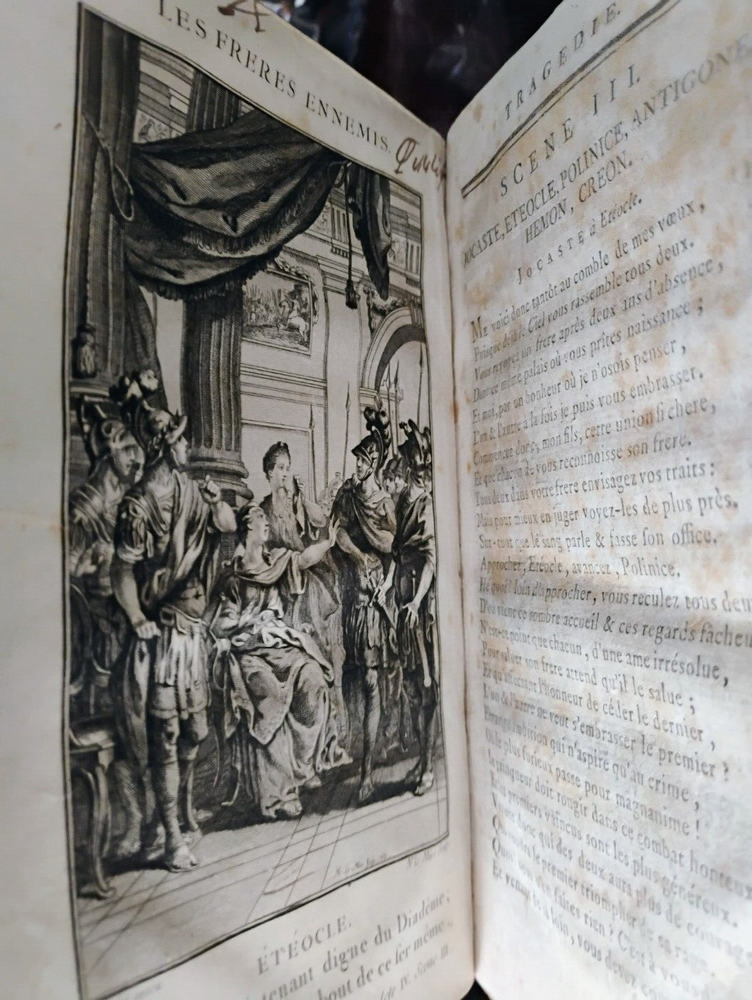 LES FRERES ENNEMIS.
ÉTÉOCLE.
tenant digne du Diadême,
bout de ce fer même
Acte IV. Scene III.
TRAGEDIE.
SCENE III.
JOCASTE, ETEOCLE, POLINICE, ANTIGONE
HEMON, CREON.
JOCASTE à Etéocle.
ME voici donc tantôt au comble de mes vœux,
Puisque déjà le Ciel vous rassemble tous deux.
Vous revoyez un frere après deux ans d'absence,
Dans ce même palais où vous prîtes naissance;
Et moi, par un bonheur où je n'osois penser,
L'un & l'autre à la fois je puis vous embrasser.
Commencez donc, mon fils, cette union si chere,
Et que chacun de vous reconnoisse son frere.
Tous deux dans votre frere envisagez vos traits:
Mais pour mieux en juger voyez-les de plus près.
Sur-tout que le sang parle & fasse son office.
Approchez, Etéocle, avancez, Polinice.
Hé quoi! loin d'approcher, vous reculez tous deux
D'où vient ce sombre accueil & ces regards fâcheux
N'est-ce point que chacun, d'une ame irrésolue,
Pour saluer son frere attend qu'il le salue;
Et qu'affectant l'honneur de céder le dernier,
L'un & l'autre ne veut s'embrasser le premier?
Etrange ambition qui n'aspire qu'au crime,
Où le plus furieux passe pour magnanime!
Le vainqueur doit rougir dans ce combat honteux
Et les premiers vaincus sont les plus généreux.
Voyons donc qui des deux aura plus de courage
Qui voudra le premier triompher de sa rage.
Quoi! vous n'en faites rien? C'est à vous
Et venant de si loin, vous devez